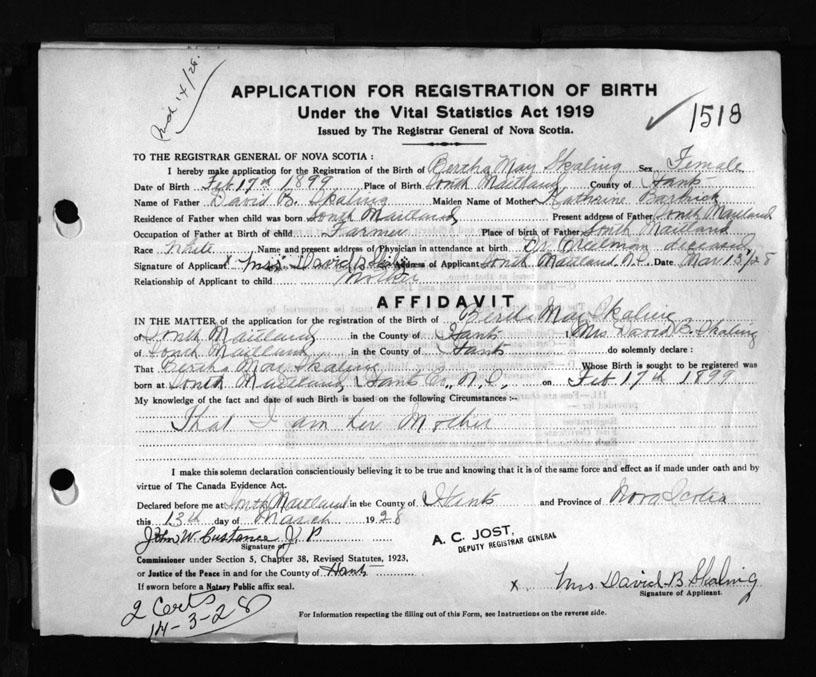 Mch 14/28.
APPLICATION FOR REGISTRATION OF BIRTH
Under the Vital Statistics Act 1919
Issued by The Registrar General of Nova Scotia.
✓ 1518
TO THE REGISTRAR GENERAL OF NOVA SCOTIA :
I hereby make application for the Registration of the Birth of Bertha May Skaling Sex Female
Date of Birth Feb 17th 1899 Place of Birth South Maitland County of Hants
Name of Father David B. Skaling Maiden Name of Mother Katherine
Residence of Father when child was born South Maitland Present address of Father South Maitland
Occupation of Father at Birth of child Farmer Place of birth of Father South Maitland
Race White Name and present address of Physician in attendance at birth Dr. Creelman deceased
Signature of Applicant x Mrs David B Skaling Address of Applicant South Maitland N.S. Date Mar 13/28
Relationship of Applicant to child Mother
AFFIDAVIT
IN THE MATTER of the application for the registration of the Birth of Bertha May Skaling
of South Maitland in the County of Hants Mrs David B. Skaling
of South Maitland in the County of Hants do solemnly declare :
That Bertha May Skaling Whose Birth is sought to be registered was
born at South Maitland, Hants Co., N.S. on Feb 17th 1899
My knowledge of the fact and date of such Birth is based on the following Circumstances :-
That I am her Mother
I make this solemn declaration conscientiously believing it to be true and knowing that it is of the same force and effect as if made under oath and by
virtue of The Canada Evidence Act.
Declared before me at South Maitland in the County of Hants and Province of Nova Scotia
this 13th day of March 1928
John W. Custance J.P
Signature of
A. C. JOST,
DEPUTY REGISTRAR GENERAL
Commissioner under Section 5, Chapter 38, Revised Statutes, 1923,
or Justice of the Peace in and for the County of Hants
If sworn before a Notary Public affix seal.
x Mrs David B Skaling
Signature of Applicant.
2 Certs
14-3-28
For Information respecting the filling out of this Form, see Instructions on the reverse side.